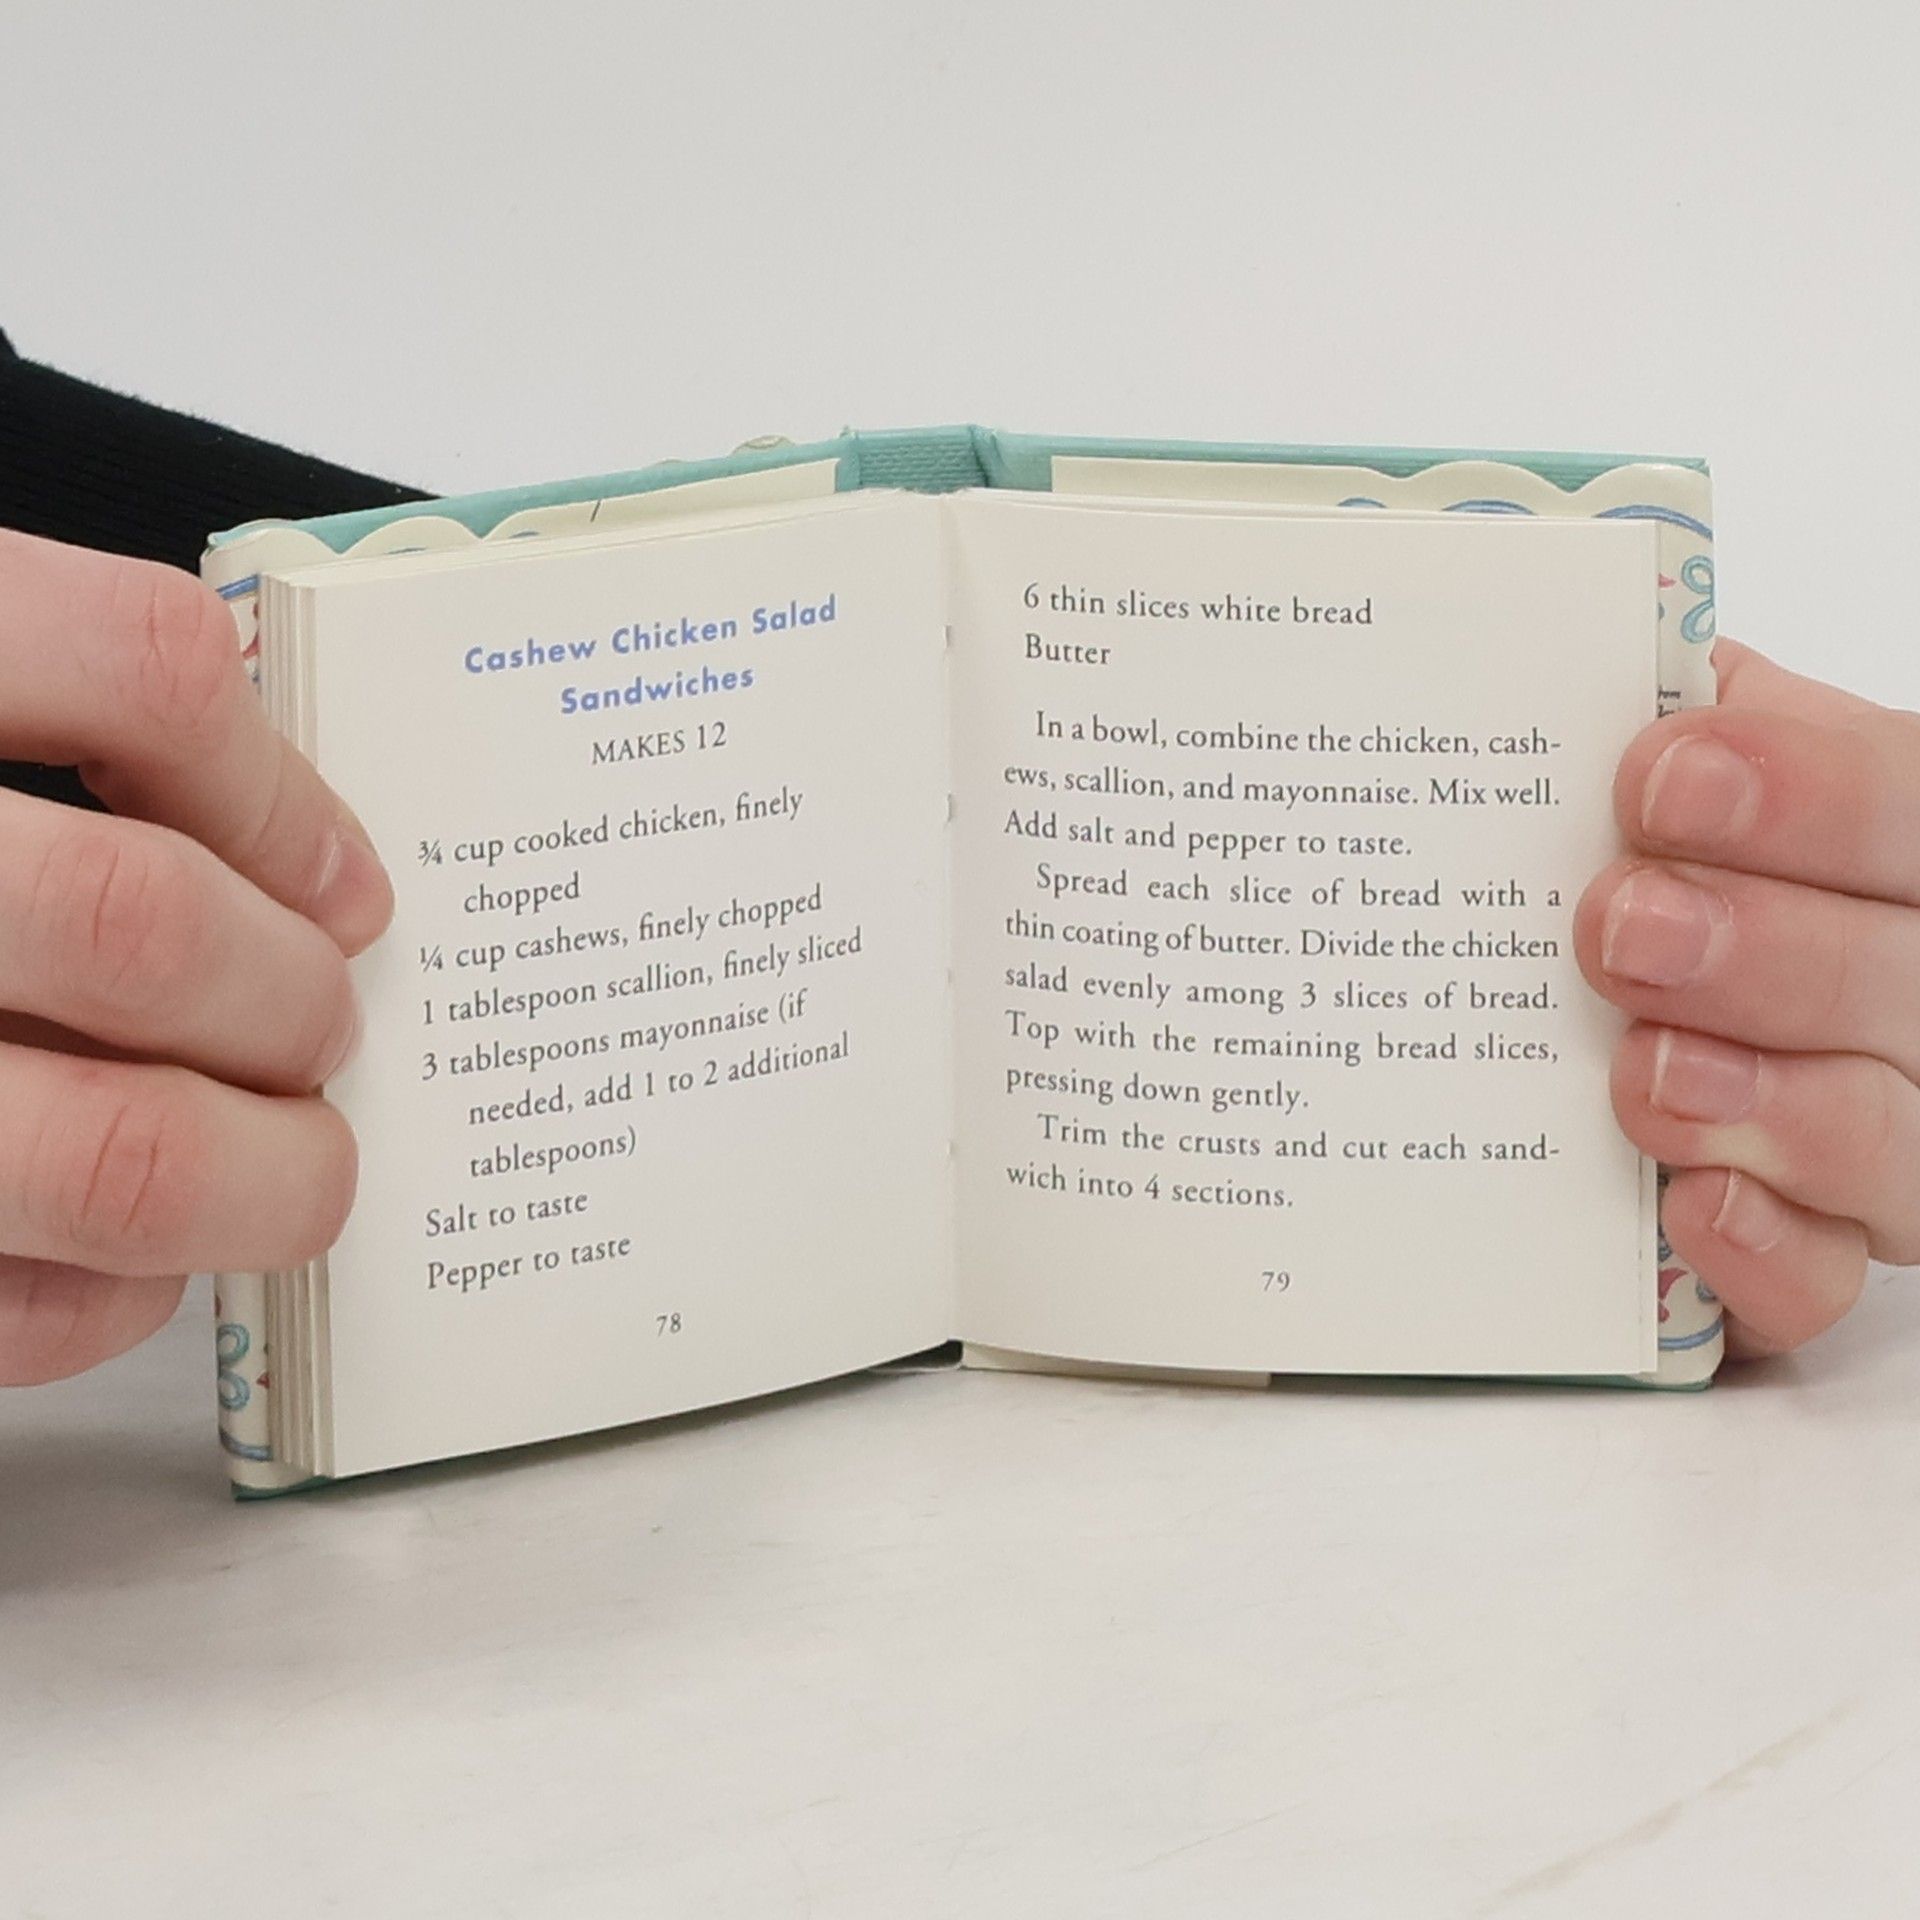 Cashew Chicken Salad
Sandwiches
MAKES 12
¾ cup cooked chicken, finely
chopped
¼ cup cashews, finely chopped
1 tablespoon scallion, finely sliced
3 tablespoons mayonnaise (if
needed, add 1 to 2 additional
tablespoons)
Salt to taste
Pepper to taste
78
6 thin slices white bread
Butter
In a bowl, combine the chicken, cash-
ews, scallion, and mayonnaise. Mix well.
Add salt and pepper to taste.
Spread each slice of bread with a
thin coating of butter. Divide the chicken
salad evenly among 3 slices of bread.
Top with the remaining bread slices,
pressing down gently.
Trim the crusts and cut each sand-
wich into 4 sections.
79